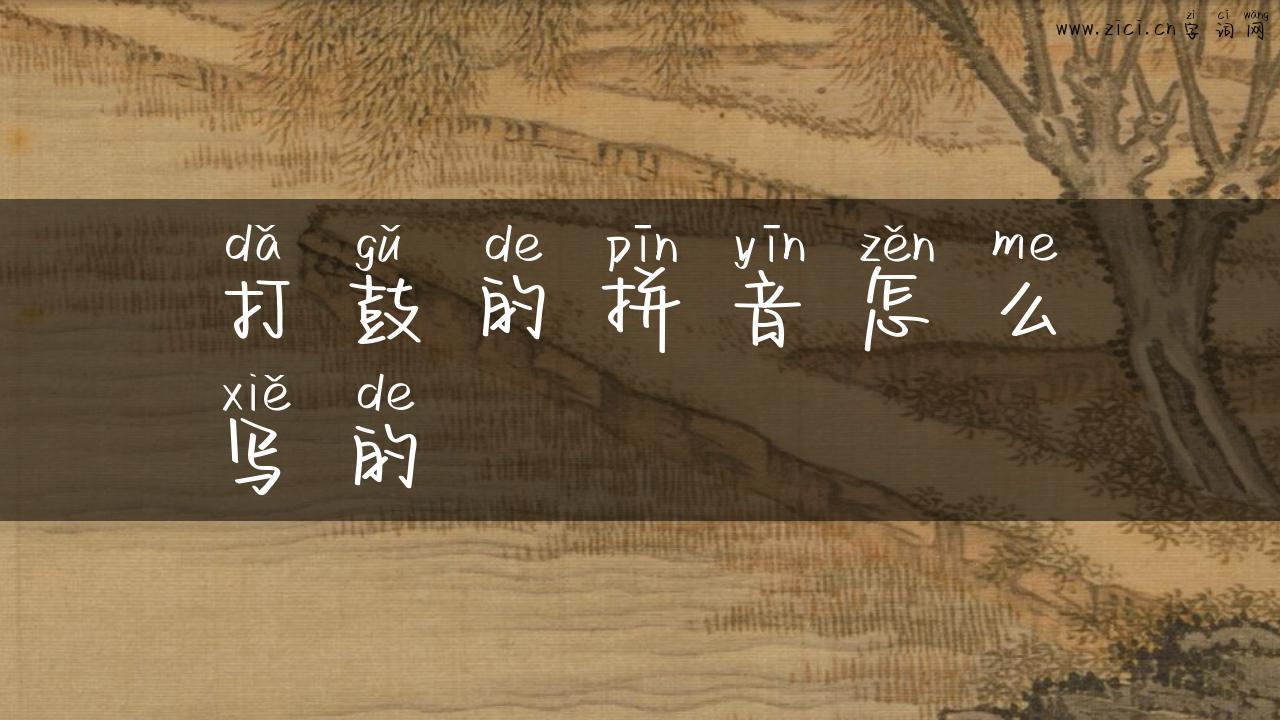 zì cī wǎng
www.zici.cn字词网
dǎ gǔ de pīn yīn zěn me
打鼓的拼音怎么
xiě de
写的